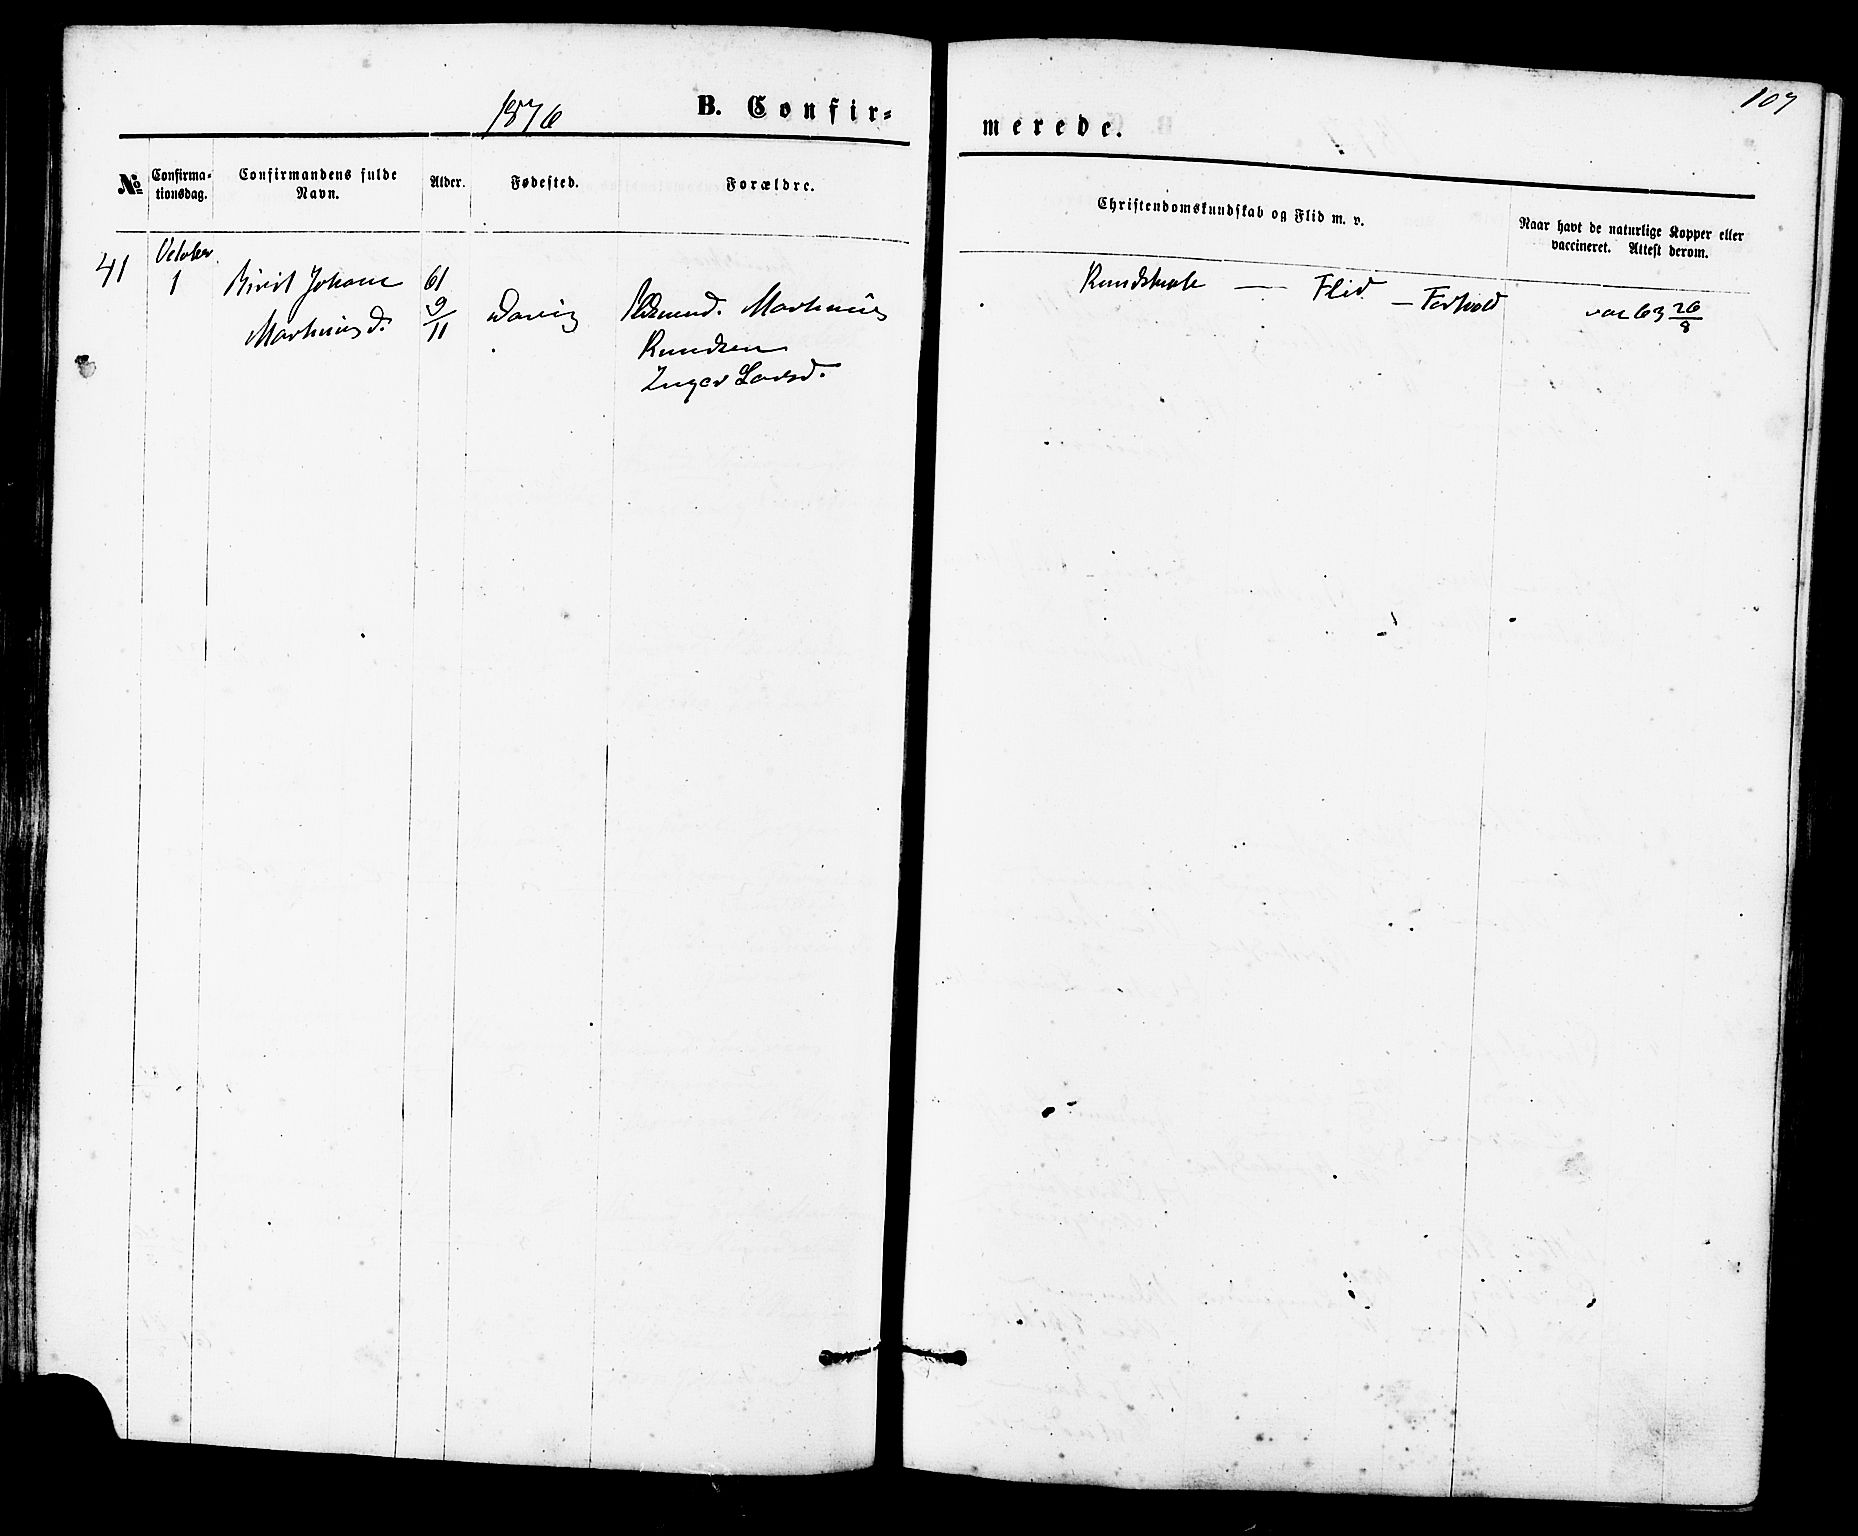 1876
B. Confir-
merede.
107
No
Confirma-
tionsdag.
Confirmandens fulde
Navn.
Alder.
Fødested.
Forældre.
Christendomskundskab og Flid m. v.
Naar havt de naturlige Kopper eller
vaccineret. Attest derom.
41
October
1
Birit Johane
Marthinusd.
61
9/11
Pldsmand. Marthinus
Knudsen
Inger Larsd.
Kundskab — Flid — Forhold
vac 63 26/8